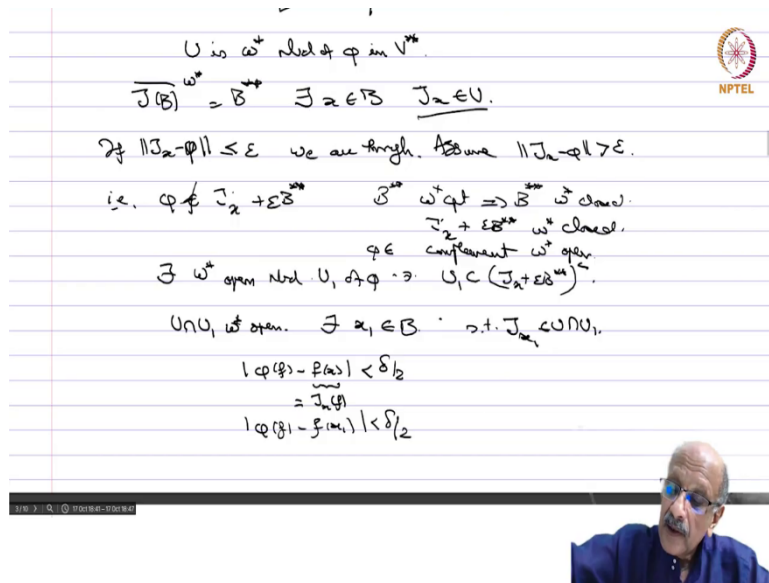 U is w* nbd of φ in V**.
NPTEL
\overline{J(B)}^{w*} = B** ∃ x ∈ B J_x ∈ U.
If ||J_x - φ|| ≤ ε we are through. Assume ||J_x - φ|| > ε.
i.e. φ ∉ J_x + εB** B** w* cpt ⇒ B** w* closed.
J_x + εB** w* closed.
φ ∈ complement w* open
∃ w* open nbd U_1 of φ ∋: U_1 ⊂ (J_x + εB**)^c.
U∩U_1 w* open. ∃ x_1 ∈ B s.t. J_{x_1} ∈ U∩U_1.
|φ(f) - f(x)| < δ/2
= J_x(f)
|φ(f) - f(x_1)| < δ/2
3/10 17 Oct 18:41 - 17 Oct 18:47